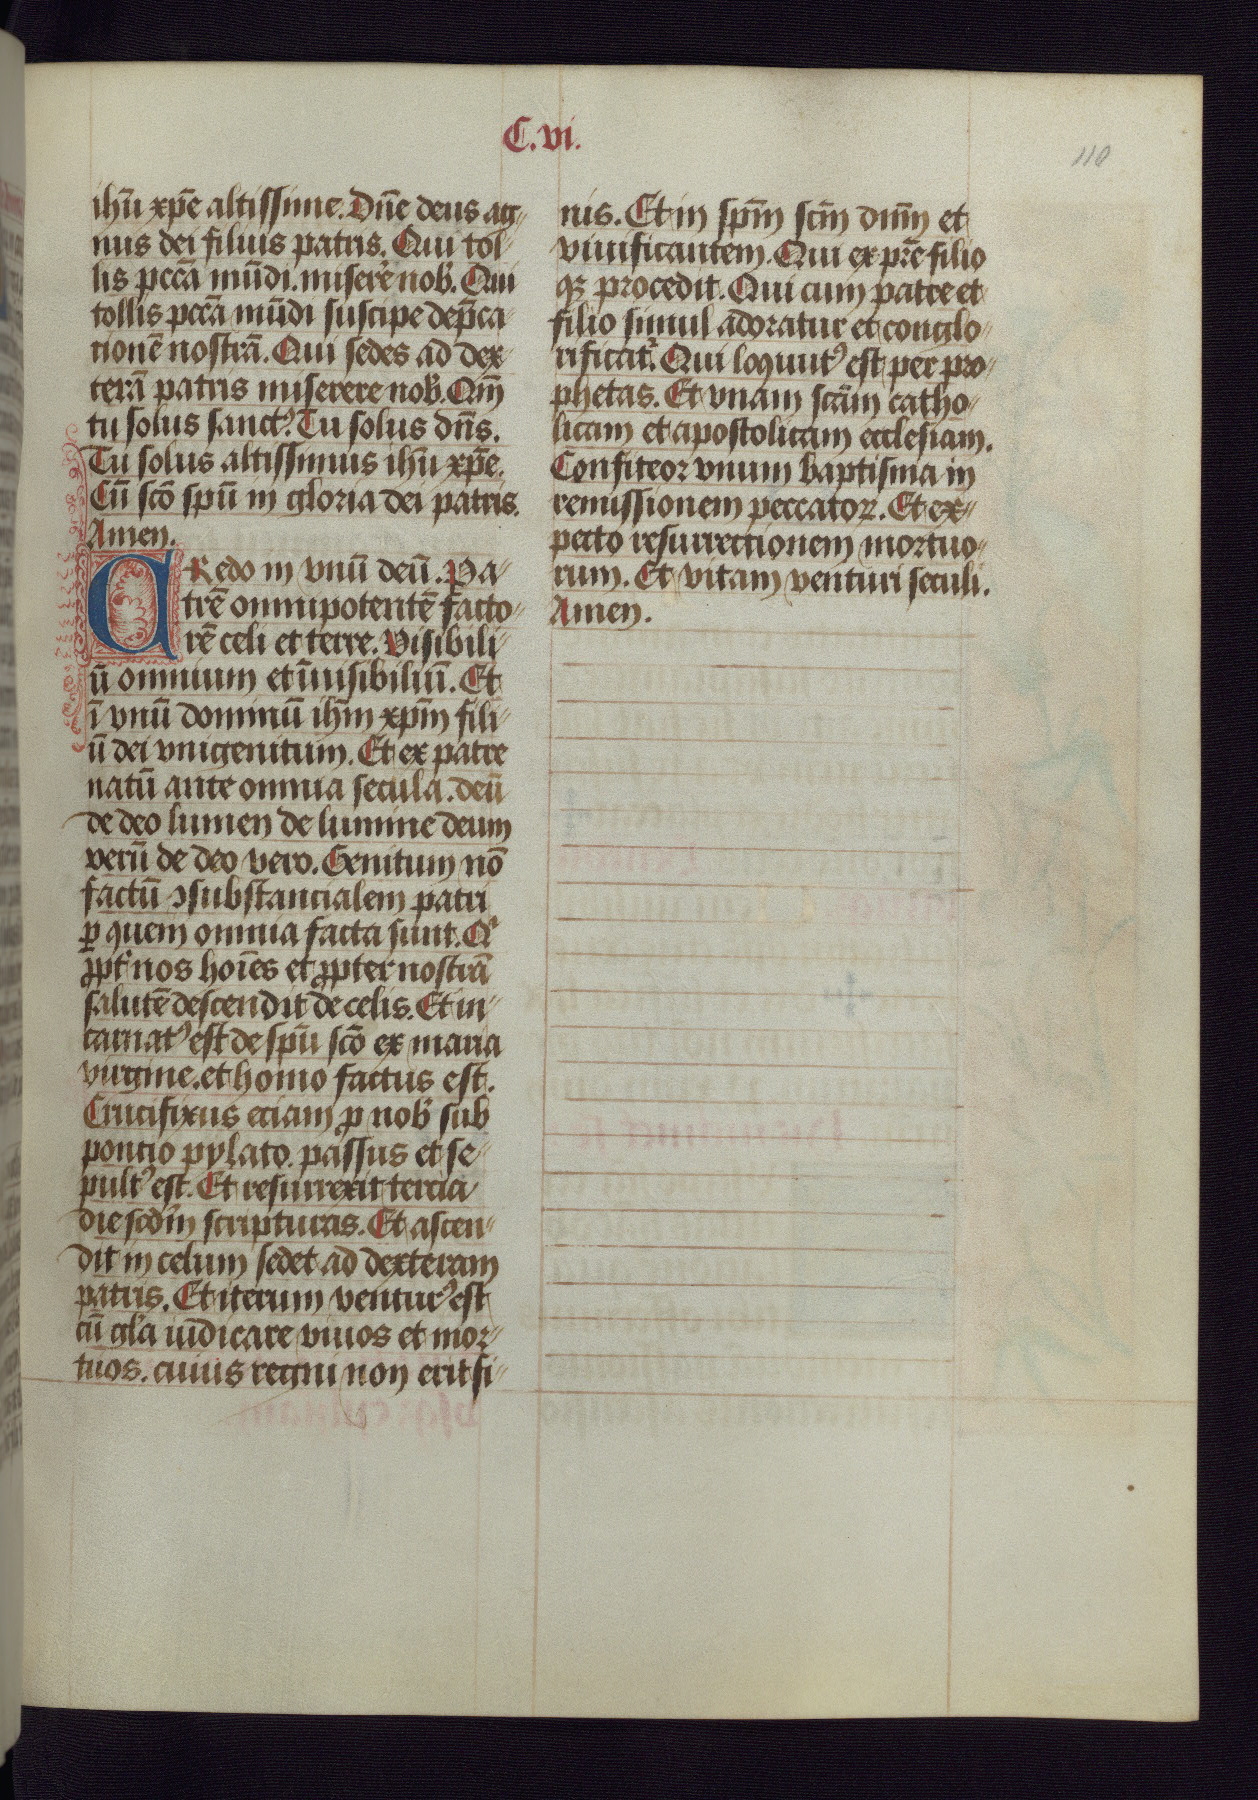 C.vi.
110
ihū xpe altissime. Dne deus ag-
nus dei filius patris. Qui tol-
lis pccā mūdi. misere nob. Qui
tollis pccā mūdi suscipe depca-
tionē nostrā. Qui sedes ad dex-
terā patris miserere nob. Qm̄
tu solus sanctꝰ. Tu solus dn̄s.
Tu solus altissimus ihū xpe.
Cū sco spū in gloria dei patris.
Amen.
CRedo in vnū deū. Pa-
trē omnipotentē facto-
rē celi et terre. Visibili-
ū omnium et īuisibiliū. Et
ī vnū dominū ihm̄ xpm̄ fili-
ū dei vnigenitum. Et ex patre
natū ante omnia secula. deū
de deo lumen de lumine deum
verū de deo vero. Genitum nō
factū ꝯsubstancialem patri
ꝑ quem omnia facta sunt. Qi
ꝓpt nos hoīes et ꝓpter nostrā
salutē descendit de celis. Et in-
carnatꝰ est de spū sco ex maria
virgine. et homo factus est.
Crucifixus eciam ꝓ nob sub
poncio pylato. passus et se-
pultꝰ est. Et resurrexit tercia
die scdm̄ scripturas. Et ascen-
dit in celum sedet ad dexteram
patris. Et iterum venturꝰ est
cū gla iudicare viuos et mor-
tuos. cuius regni non erit fi-
nis. Et in spm̄ scm̄ dnm̄ et
viuificantem. Qui ex pre filio
qꝫ procedit. Qui cum patre et
filio simul adoratur et conglo-
rificat. Qui loquutꝰ est per pro-
phetas. Et vnam scām catho-
licam et apostolicam ecclesiam.
Confiteor vnum baptisma in
remissionem peccatoꝝ. Et ex-
pecto resurrectionem mortuo-
rum. Et vitam venturi seculi.
Amen.